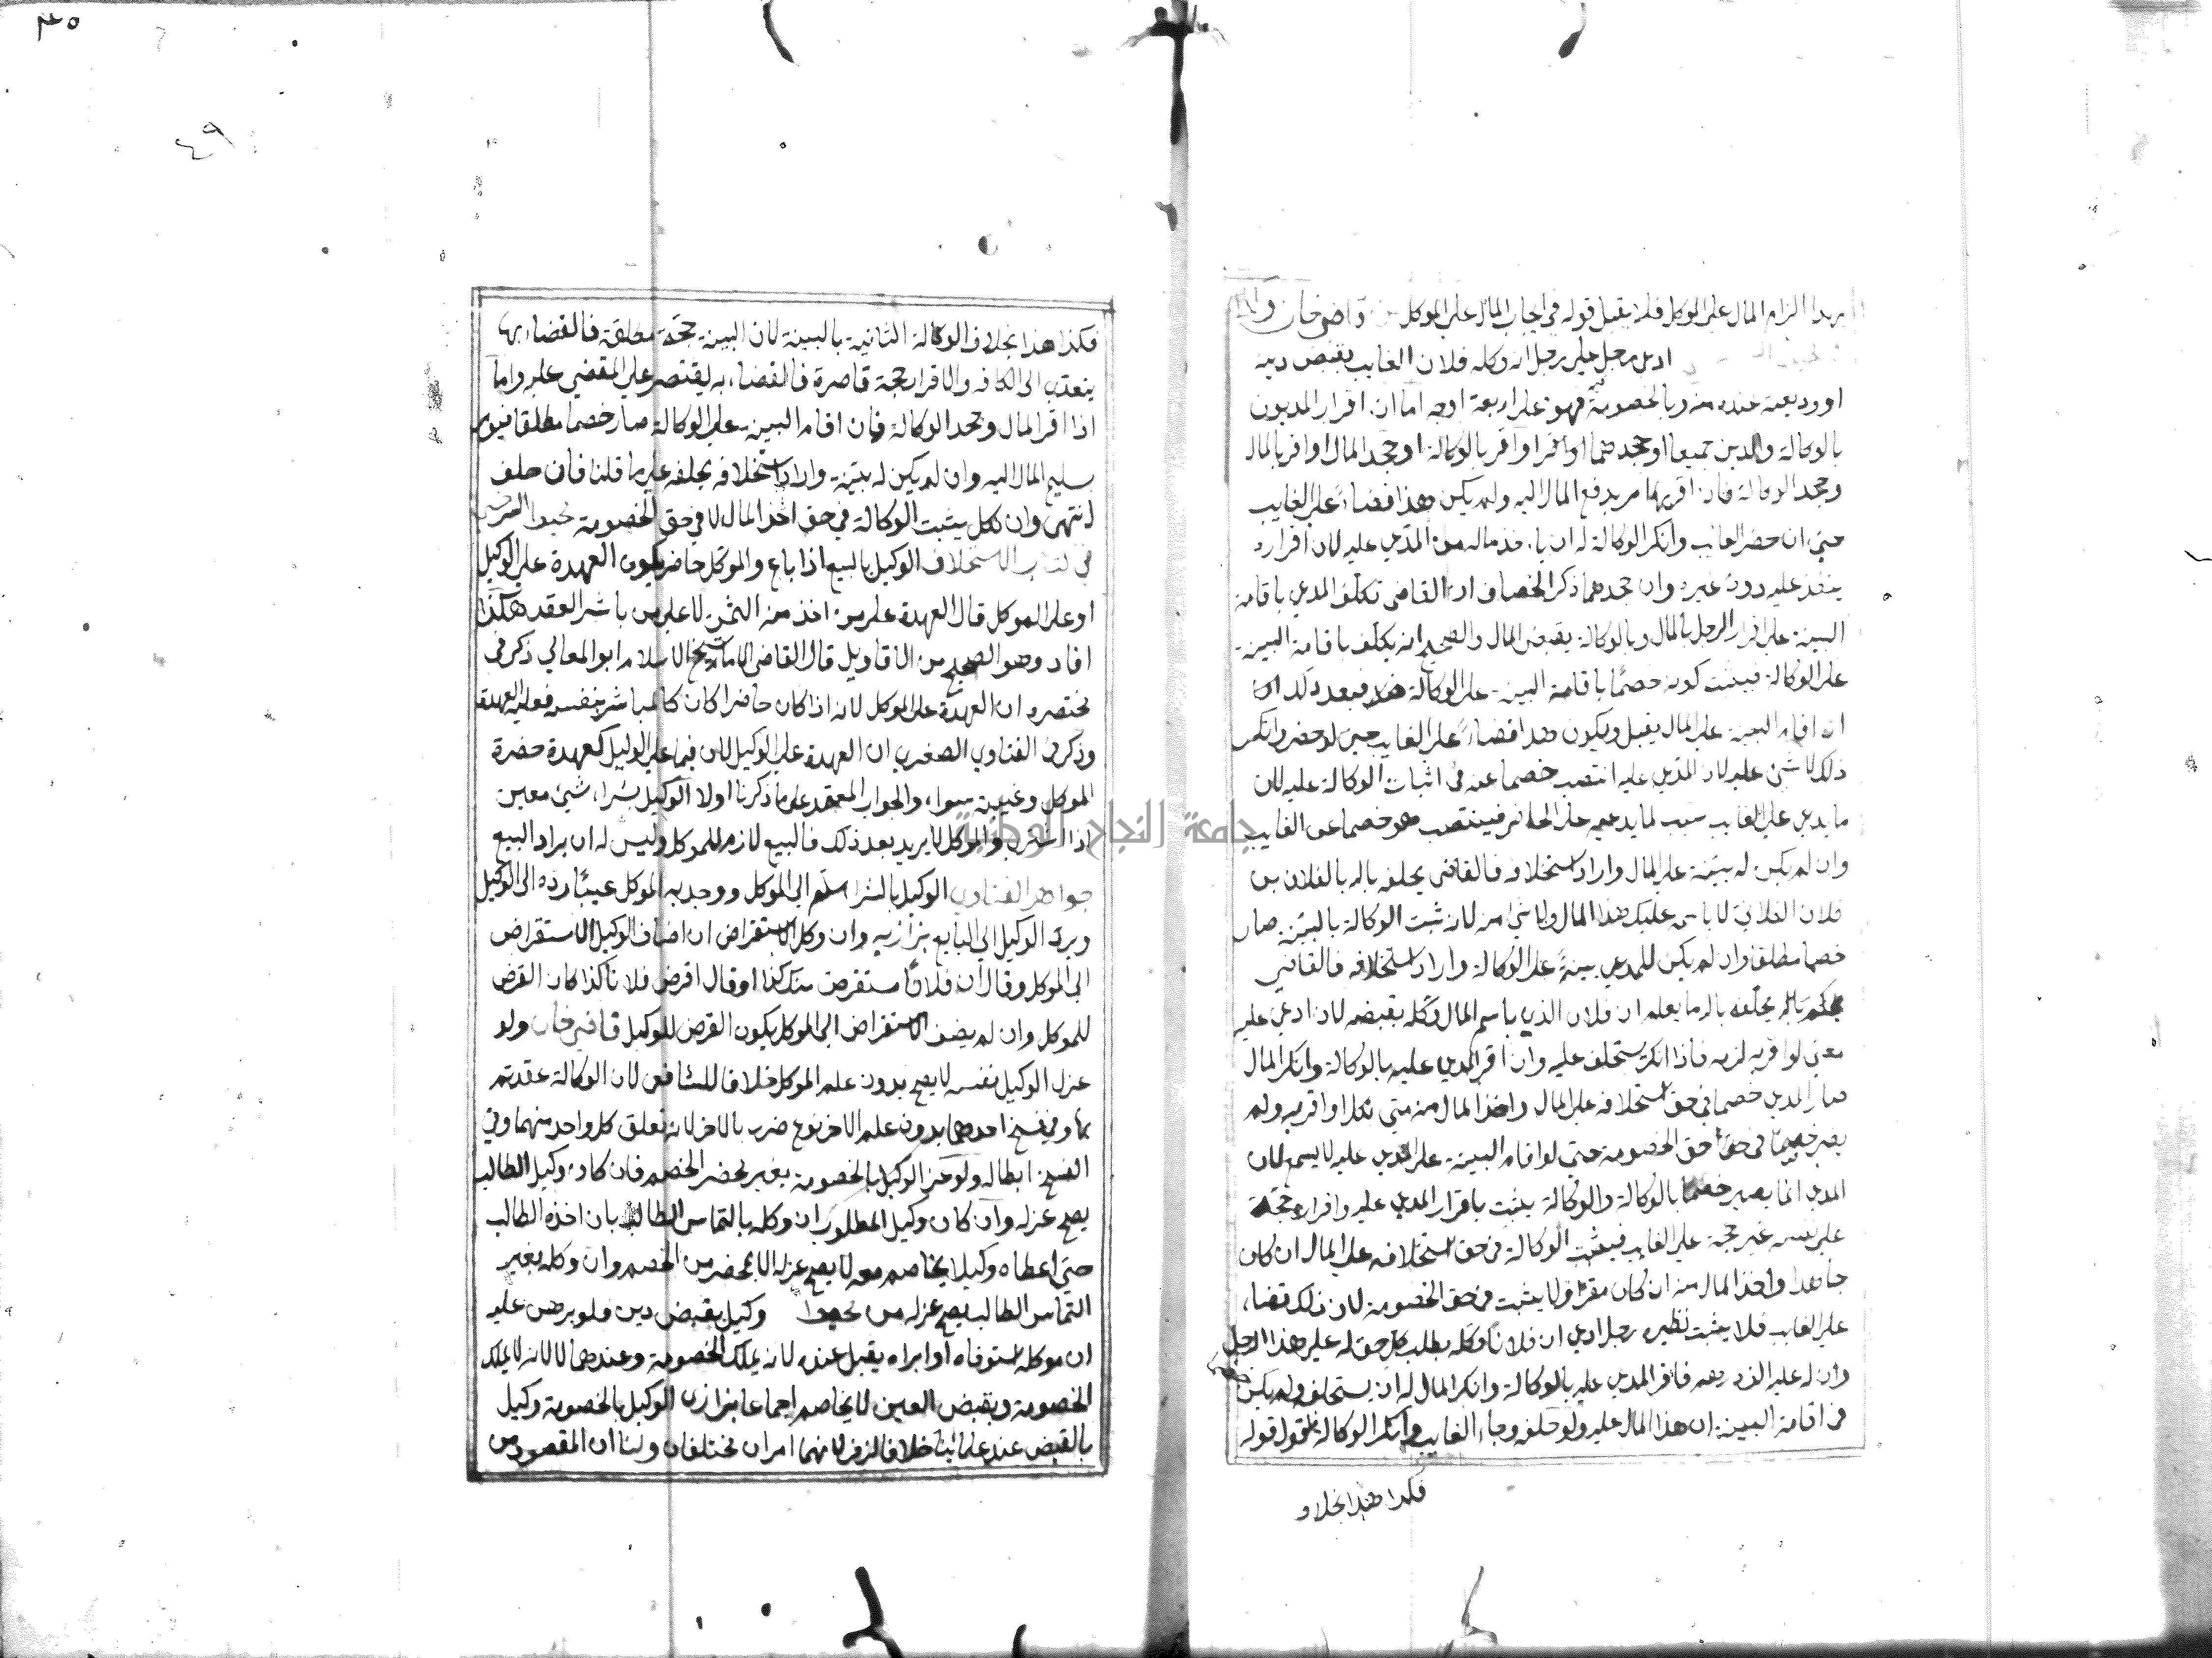 بهذا الزام المال على الموكل فلا يقبل قوله في ايجاب المال على الموكل قاضي خان
ادعى رجل على رجل انه وكله فلان الغايب بقبض دينه
او وديعة عنده منه وبالخصومة فيه فهو على اربعة اوجه اما ان اقر المديون
بالوكالة والدين جميعا او جحدهما او اقر بالوكالة او جحد المال او اقر بالمال
وجحد الوكالة فان اقر بهما مر بدفع المال اليه ولم يكن هذا قضاء على الغايب
حتى ان حضر الغايب وانكر الوكالة له ان ياخذ ماله من المدعى عليه لان اقراره
ينفذ عليه دون غيره وان جحدهما ذكر الخصاف ان القاضي تكلف المدعي باقامة
البينة على اقرار الرجل بالمال وبالوكالة بقبض المال والصحيح انه يكلف باقامة البينة
على الوكالة فيثبت كونه خصما باقامة البينة على الوكالة فبعد ذلك
ان اقام البينة على المال يقبل ويكون هذا قضاء على الغايب حتى لو حضر وانكر
ذلك لا شئ عليه لان المدعى عليه انتصب خصما عنه في اثبات الوكالة عليه لان
ما يدعي على الغايب سبب لما يدعيه على الحاضر فينتصب هو خصما عن الغايب
وان لم يكن له بينة على المال واراد استحلافه فالقاضي يحلفه بالله بالفلان بن
فلان الفلاني عليك هذا المال ولا شئ منه لان ثبت الوكالة بالبينة صار
خصما مطلقا وان لم يكن للمدعي بينة على الوكالة واراد استحلافه فالقاضي
يحلفه بالله ما يعلم ان فلان الذي باسم المال وكله بقبضه لان ادعى عليه
معنى لو اقر به لزمه فاذا انكر يستحلف عليه وان اقر المدعي عليه بالوكالة وانكر المال
صار المدعي خصما في حق استحلافه على المال واخذ المال منه متى نكل او اقر به ولم
يصر خصما في حق الخصومة حتى لو اقام البينة على المدعي عليه لا يسمع لان
المدعي انما يصير خصما بالوكالة والوكالة يثبت باقرار المدعي عليه واقراره حجة
على نفسه غير حجة على الغايب فيثبت الوكالة في حق استحلافه على المال ان كان
جاهدا واخذ المال منه ان كان مقرا ولا يثبت في حق الخصومة لان ذلك قضاء
على الغايب فلا يثبت نظيره رجل ادعى ان فلانا وكله بطلب كل حق له على هذا الرجل
وان له عليه الف درهم فاقر المدعي عليه بالوكالة وانكر المال له ان يستحلف ولم يكن
في اقامة البينة ان هذا المال عليه ولو حلف وجاء الغايب وانكر الوكالة فالقول قوله
فكذا هذا بخلاف
٣٥
٤٩
فكذا هذا بخلاف الوكالة الثانية بالبينة لان البينة حجة مطلقة فالقضاء بها
يتعدى الى الكافة والاقرار حجة قاصرة فالقضاء به يقتصر على المقضي عليه واما
اذا اقر المال وجحد الوكالة فان اقام البينة على الوكالة صار خصما مطلقا فيؤمر
بتسليم المال اليه وان لم يكن له بينة واراد استحلافه يحلفه على ما قلنا فان حلف
انتهى وان نكل يثبت الوكالة في حق اخذ المال لا في حق الخصومة محيط السرخسي
في كتاب الاستحلاف الوكيل بالبيع اذا باع والموكل حاضر يكون العهدة على الوكيل
او على الموكل قال العهدة على من اخذ منه الثمن لا على من باشر العقد هكذا
افاد وهو الصحيح من الاقاويل قال القاضي الامام شيخ الاسلام ابو المعالي ذكر في
مختصره ان العهدة على الموكل لانه اذا كان حاضرا كان كالمباشر بنفسه فعليه العهدة
وذكر في الفتاوي الصغرى ان العهدة على الوكيل لان فيما على الوكيل كعهدة حضرة
الموكل وغيبته سواء والجواب المعتمد على ما ذكرنا اولا الوكيل بشراء شئ معين
اذا اشترى والموكل لا يريد بعد ذلك فالبيع لازم للموكل وليس له ان يراد البيع
جواهر الفتاوى الوكيل بالشرا سلم الى الموكل ووجد به الموكل عيبا رده الى الوكيل
ويرد الوكيل الى البايع بزازيه وان وكل بالاستقراض ان اضاف الوكيل الاستقراض
الى الموكل وقال ان فلانا استقرض منك كذا او قال اقرض فلانا كذا كان القرض
للموكل وان لم يضف الاستقراض الى الموكل يكون القرض للوكيل قاضي خان ولو
عزل الوكيل نفسه لا يصح بدون علم الموكل خلافا للشافعي لان الوكالة عقد تم
بهما وفي فسخ احدهما بدون علم الاخر نوع ضرر بالاخر لانه تعلق كل واحد منهما وفي
الفسخ ابطاله ولو عزل الوكيل بالخصومة بغير محضر الخصم فان كان وكيل الطالب
يصح عزله وان كان وكيل المطلوب ان وكله بالتماس الطالب بان اخذه الطالب
حتى اعطاه وكيلا يخاصم معه لا يصح عزله الا بمحضر من الخصم وان وكله بغير
التماس الطالب يصح عزله من محيط وكيل بقبض دين فلو برهن عليه
ان موكله استوفاه او ابراه يقبل عنده لانه يملك الخصومة وعندهما لا لانه لا يملك
الخصومة وبقبض العين لا يخاصم اجماعا بزازي الوكيل بالخصومة وكيل
بالقبض عند علمائنا خلافا لزفر لانهما امران مختلفان ولنا ان المقصود من
جامعة النجاح الوطنية